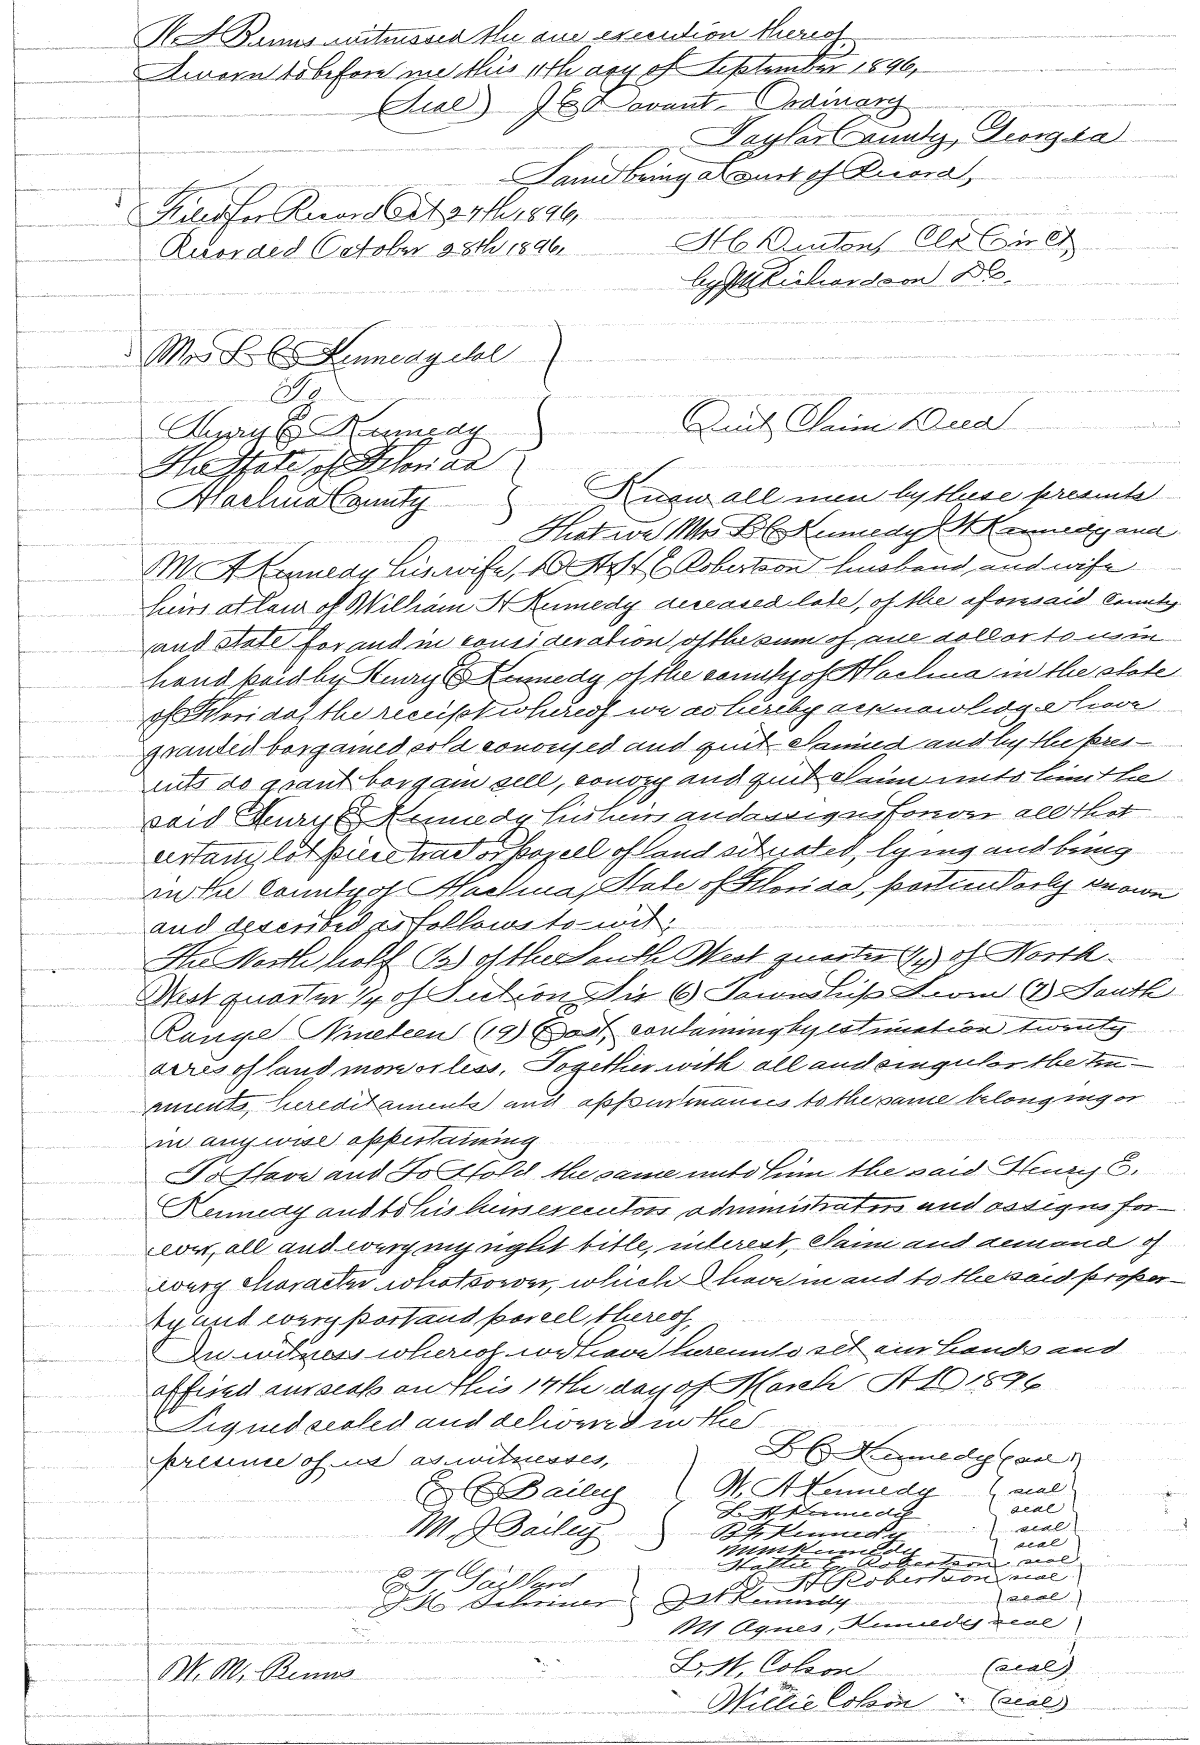 witnessed the due execution thereof
Sworn to before me this 11th day of September 1896,
(Seal) Ordinary
Taylor County, Georgia
Same being a Court of Record,
Filed for Record Oct 27th 1896,
Recorded October 28th 1896, Clk Cir Ct
by M Richardson DC.
Mrs L C Kennedy et al
To
Henry E Kennedy Quit Claim Deed
The State of Florida
Alachua County Know all men by these presents
That we Mrs L C Kennedy Kennedy and
M A Kennedy his wife, D H & H E Robertson husband and wife
heirs at law of William H Kennedy deceased late, of the aforesaid County
and state for and in consideration of the sum of one dollar to us in
hand paid by Henry E Kennedy of the county of Alachua in the state
of Florida, the receipt whereof we do hereby acknowledge have
granted bargained sold conveyed and quit claimed and by the pres-
ents do grant bargain sell, convey and quit claim unto him the
said Henry E Kennedy his heirs and assigns forever all that
certain lot piece tract or parcel of land situated, lying and being
in the County of Alachua, State of Florida, particularly known
and described as follows to-wit;
The North half (½) of the South West quarter (¼) of North-
West quarter ¼ of Section Six (6) Township Seven (7) South
Range Nineteen (19) East, containing by estimation twenty
acres of land more or less. Together with all and singular the ten-
ements, hereditaments and appurtenances to the same belonging or
in anywise appertaining
To Have and To Hold the same unto him the said Henry E.
Kennedy and to his heirs executors administrators and assigns for-
ever, all and every my right title, interest, claim and demand of
every character whatsoever, which I have in and to the said proper-
ty and every part and parcel thereof,
In witness whereof we have hereunto set our hands and
affixed our seals on this 14th day of March A D 1896
Signed sealed and delivered in the
presence of us as witnesses, L C Kennedy (seal)
E C Bailey W. A Kennedy (seal)
L H Kennedy (seal)
M. J Bailey B F Kennedy (seal)
Kennedy (seal)
Hattie E. Robertson seal
Gaillard D H Robertson seal
J H Schriner Kennedy (seal)
M Agnes, Kennedy seal
L. W. Colson (seal)
W. M. Renns
Willie Colson (seal)